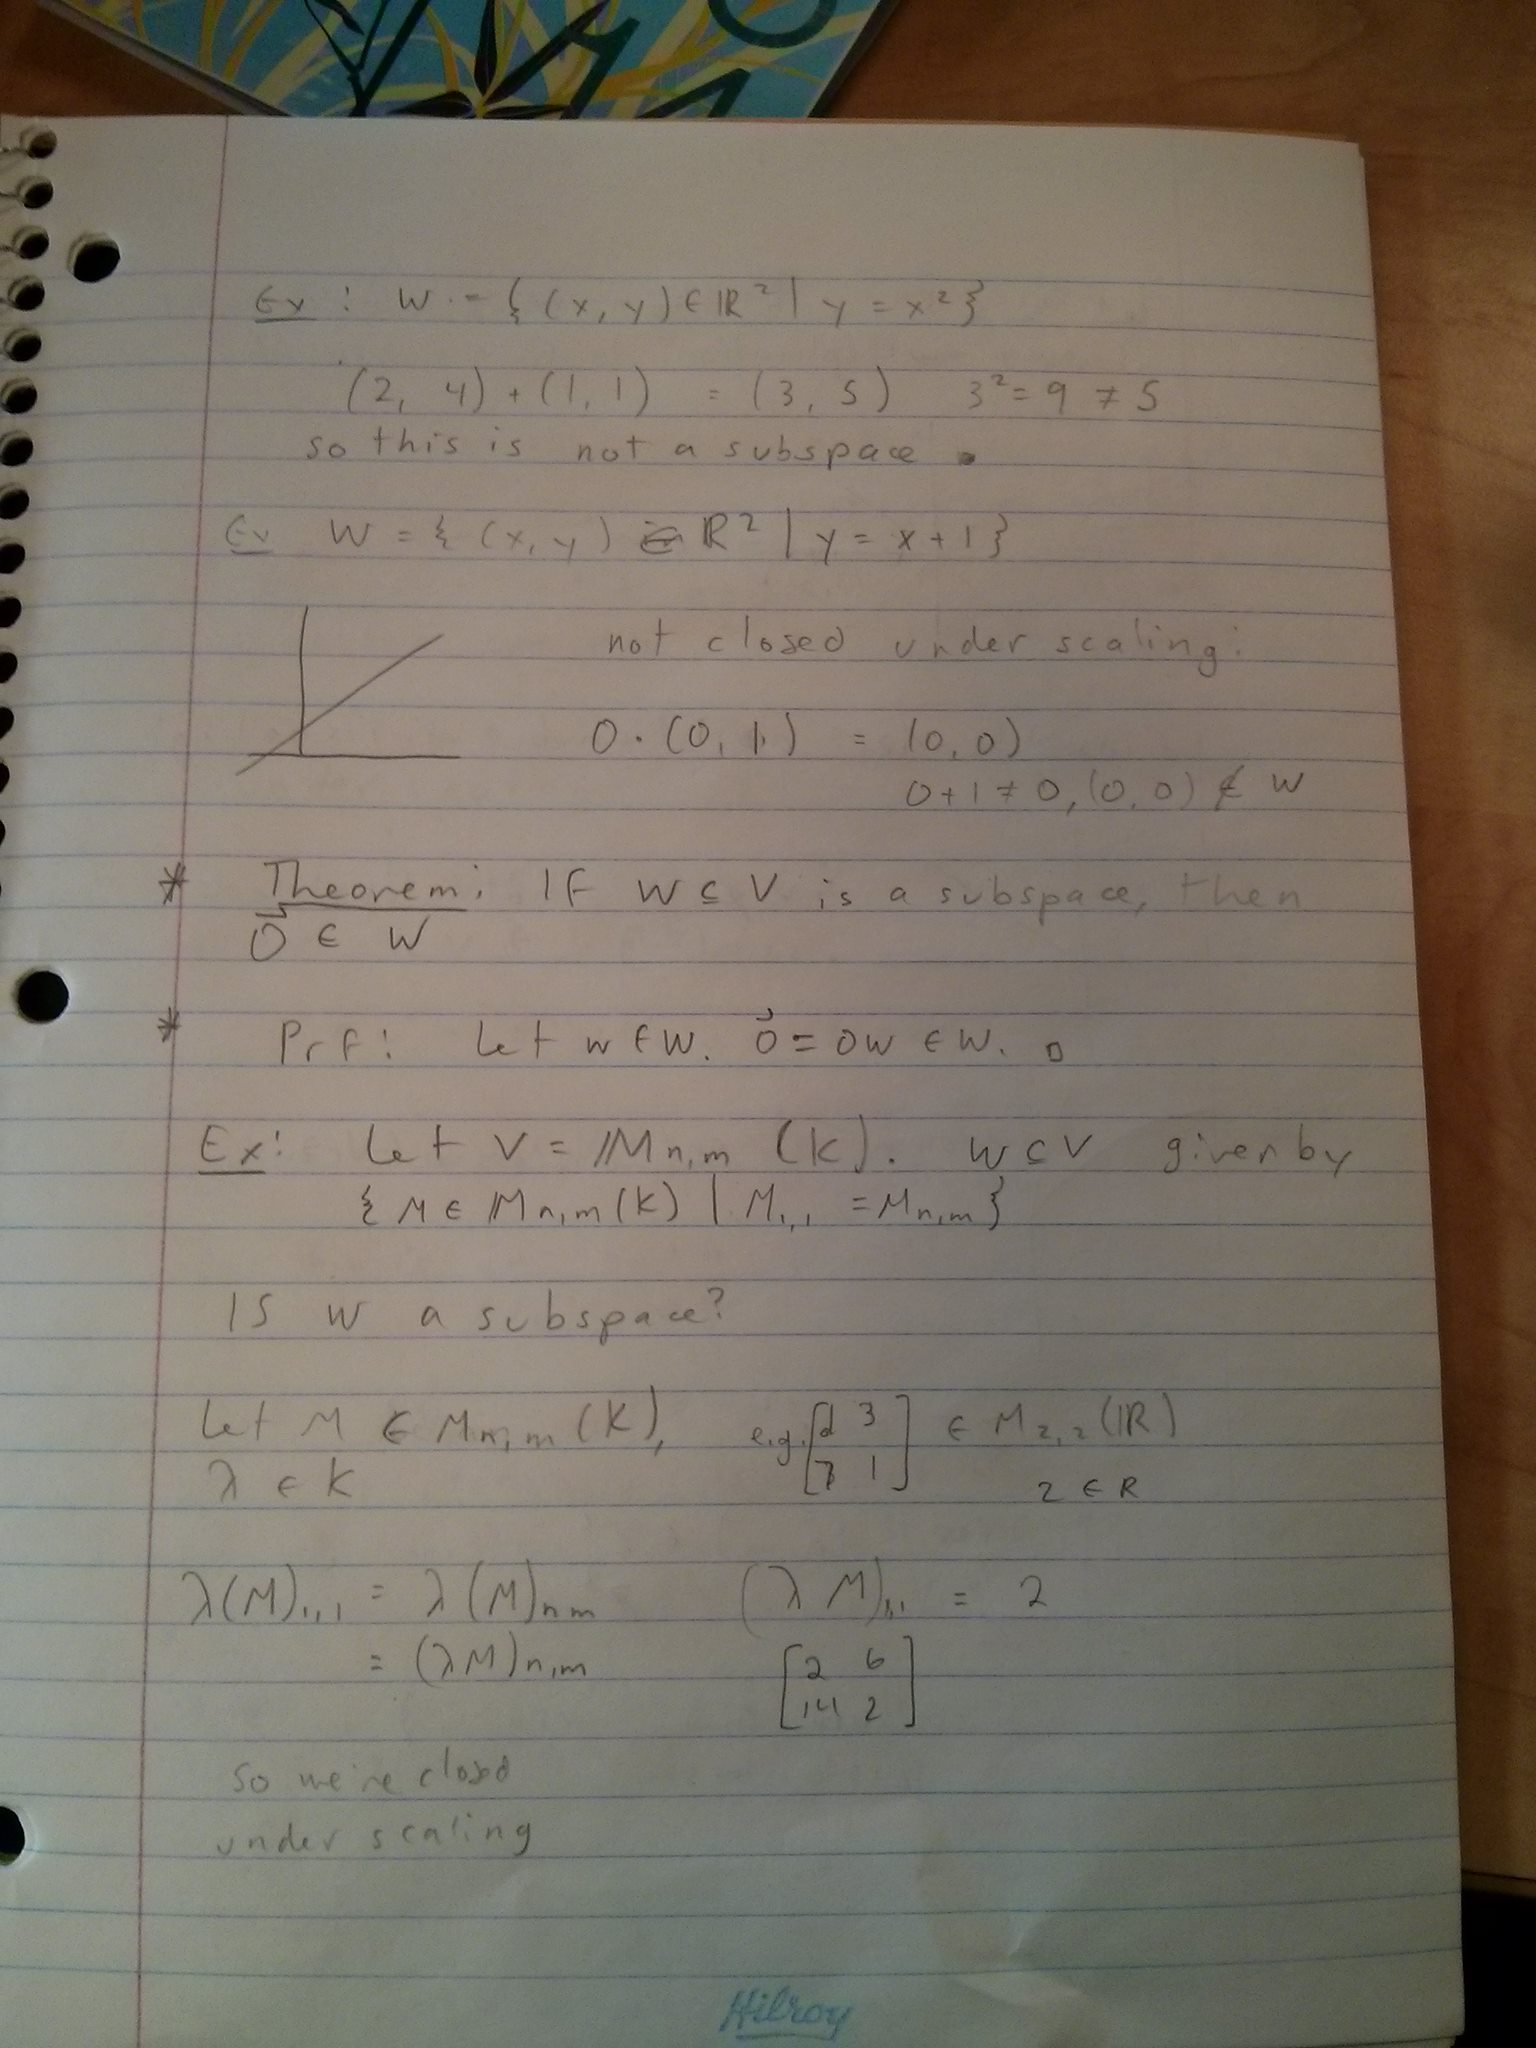 Ex: W = {(x, y) ∈ ℝ² | y = x²}
(2, 4) + (1, 1) = (3, 5) 3² = 9 ≠ 5
so this is not a subspace.
Ex W = {(x, y) ∈ ℝ² | y = x + 1}
not closed under scaling:
0 · (0, 1) = (0, 0)
0 + 1 ≠ 0, (0, 0) ∉ W
* Theorem: IF W ⊆ V is a subspace, then
0⃗ ∈ W
* Prf: Let w ∈ W. 0⃗ = 0w ∈ W. □
Ex: Let V = 𝕄n,m (K). W ⊆ V given by
{M ∈ 𝕄n,m (K) | M1,1 = Mn,m}
IS W a subspace?
Let M ∈ Mn,m (K), e.g. [1 3 ∈ M2,2 (ℝ)
λ ∈ K 7 1] 2 ∈ R
λ(M)1,1 = λ(M)n m (λ M)1,1 = 2
= (λM)n,m [2 6
14 2]
so we're closed
under scaling
Hilroy